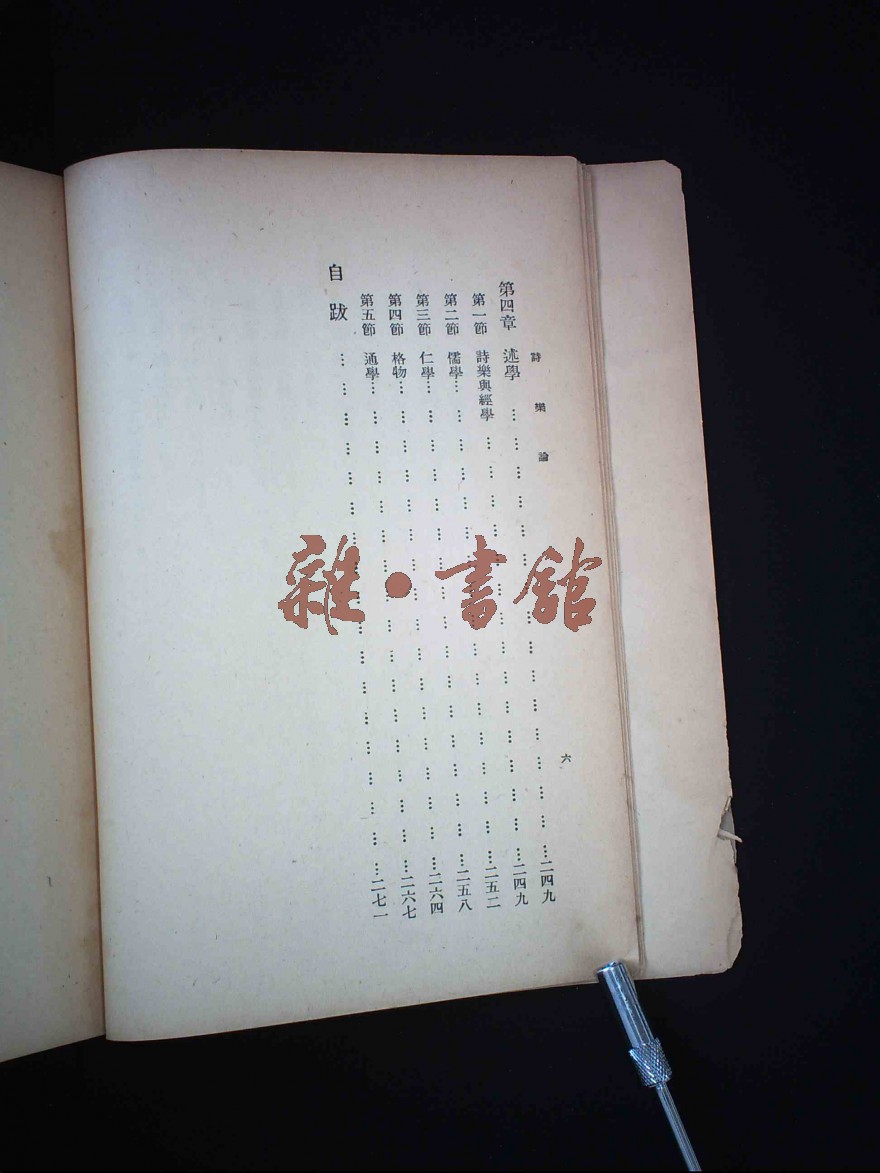 詩樂論 六
第四章 述學 … … … … … … … … … … … … … … …二四九
第一節 詩樂與經學 … … … … … … … … … … … … … …二四九
第二節 儒學… … … … … … … … … … … … … … … …二五二
第三節 仁學… … … … … … … … … … … … … … … …二五八
第四節 格物… … … … … … … … … … … … … … … …二六四
第五節 通學… … … … … … … … … … … … … … … …二六七
自跋 … … … … … … … … … … … … … … … … …二七一
雜·書館